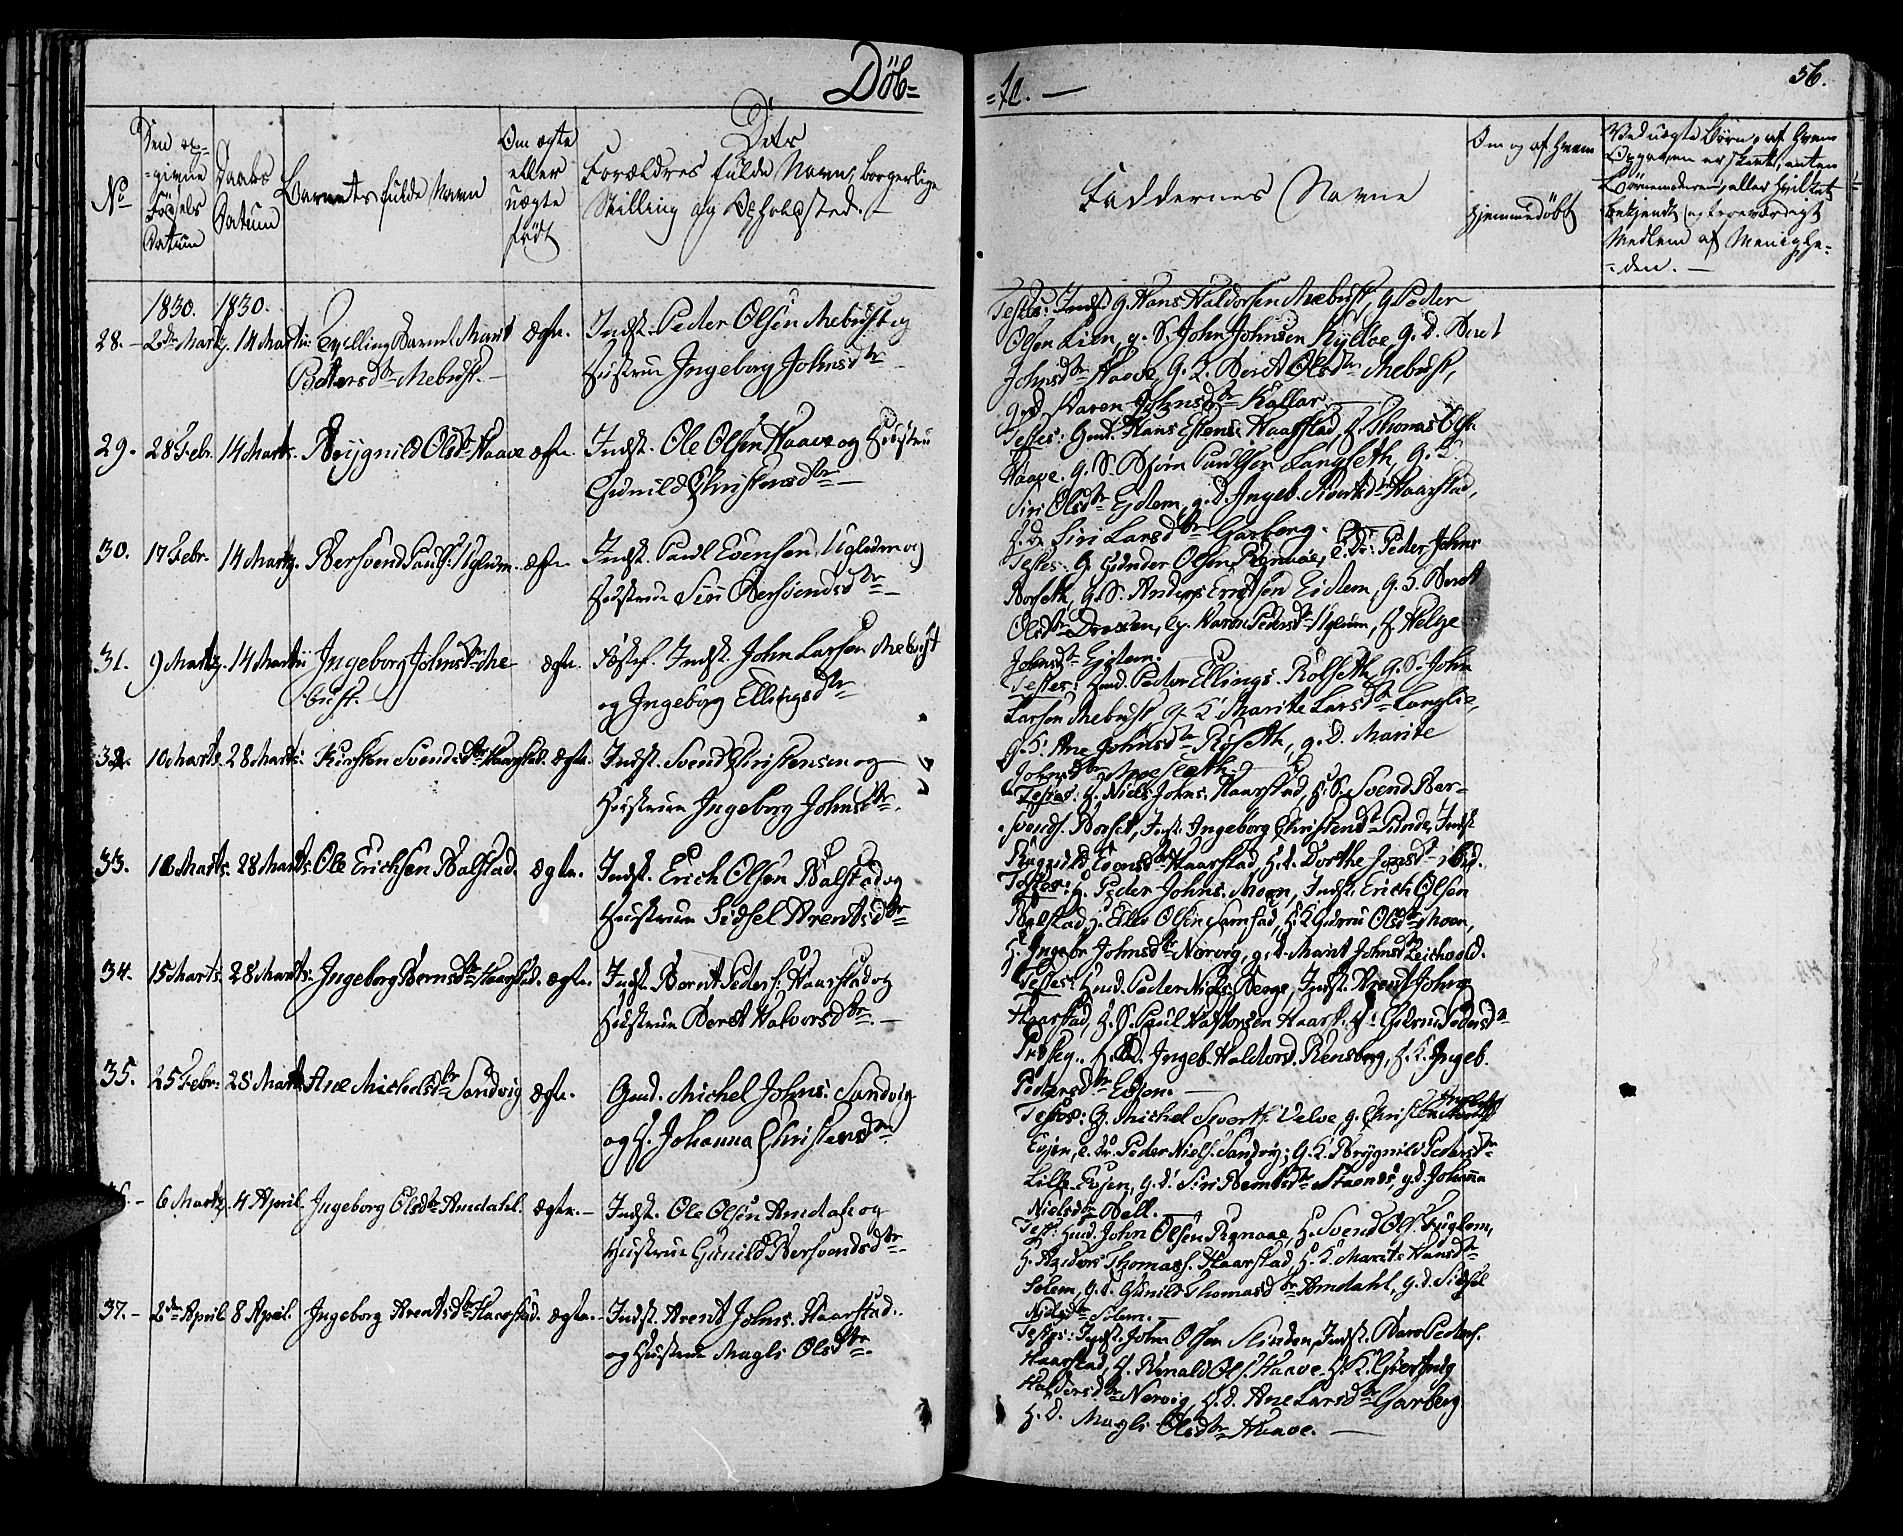 Døb=
=te. —
56.
No
Den op=
=givne
Fødsels
Datum
Daabs
Datum
Barnets fulde Navn
Om ægte
eller
uægte
født
Dets
Forældres fulde Navn, borgerlige
Stilling og Opholdsted. —
Faddernes Navne
Om og af hvem
hjemmedøbt
Ved uægte Børn, af hvem
Opgaven er skeet; enten
Børnemoderen, eller hvilket
bekjendt og troeværdigt
Medlem af Menighe=
=den. —
1830. 1830.
28. — 2den Martz. 14 Martii: Tvilling Barnet Marit
Petersdtr Mebust. —
ægte.
Indst. Peder Olsen Mebust og
Hustrue Ingeborg Johnsdtr —
Testes: Indst. G. Hans Haldorsen Mebust, G. Peder
Olsen Lien, g. S. John Johnsen Kylloe, g. d. Beret
Johnsdtr Haave, G. K. Beret Olsdtr Mebust,
g. d. Karen Johnsdtr Kallar. —
29. 28 Febr. 14 Marts. Brygnild Olsdtr Haave ægte.
Indst. Ole Olsen Haave og Hustrue
Gunild Christensdtr —
Testes: Gmd. Hans Estens. Haarstad, H. Thomas Ols.
Haave, g. S. Bjørn Paulsen Langseth, G. K.
Siri Olsdtr Eidem, g. d. Ingeb. Sivertsdtr Haarstad,
H. d. Siri Larsdtr Garberg. —
30. 17 Febr. 14 Martz. Bersvend Pauls. Uglum. ægte.
Indst. Paul Evensen Uglum og
Hustrue Siri Bersvendsdtr —
Testes: G. Gunder Olsen Rignaae, E. Dr: Peder Johns
Borseth, G. S. Anders Erichsen Eidem, G. K. Beret
Olsdtr Draxen, Gg. Karen Pedersdtr Uglum, H. Helge
Johnsdtr Eidem.
31. 9 Martz. 14 Martii Ingeborg Johnsdtr Me
bust.
ægte.
Fæstef. Indst. John Larsen Mebust
og Ingeborg Ellingsdtr
Testes: Gmd. Peder Ellings. Rolseth, G. S. John
Larsen Mebust, G. K. Marite Larsdtr Langlie,
G. K. Ane Johnsdtr Rolseth, g. d. Marite
Johnsdtr Moesleth.
32. 10 Marts. 28 Marts: Kirsten Svendsdtr Haarstad. ægte.
Indst. Svend Christensen og
Hustrue Ingeborg Johnsdtr.
Testes: G. Niels Johns. Haarstad, H. S. Svend Ber=
svends. Borset, Indst. Ingeborg Christensdtr Lunde, Indst.
Evensdtr Haarstad, H. d. Dorthe Jonsdtr ibid.
33. 16 Marts. 28 Marts. Ole Erichsen Balstad. ægte.
Indst. Erich Olsen Balstad og
Hustrue Sidsel Arentsdtr —
Testes: G. Peder Johns. Moen, Indst. Erich Olsen
Balstad, H. Elles Olsen Samstad, H. K. Guru Olsdtr Moen,
H. Ingebr Johnsdtr Nervig, g. d. Marit Johnsdtr Reichvold.
34. 15 Marts. 28 Marts: Ingeborg Berntsdtr Haarstad. ægte.
Indst. Bernt Peders. Haarstad og
Hustrue Beret Halvorsdtr. —
Testes: Gmd. Peder Niels. Berge, Indst. Arent Johns.
Haarstad, H. S. Paul Haltorsen Haarst. H. Guru Pedersdtr
H. d. Ingeb. Haldorsd. Rensberg, H. K. Ingeb.
Pedersdtr Evjen. —
35. 25 Febr: 28 Marts Ane Michelsdtr Sandvig ægte.
Gmd. Michel Johns. Sandvig
og H. Johanna Christensdtr
Testes: G. Michel Sivertsen Velve, g. Christen
Evjen, E. Dr. Peder Niels. Sandvig; G. K. Brygnild Pedersdtr
Lille Evjen, g. d. Siri Berntsdtr Staenes, g. d. Johanna
Nielsdtr Bell. —
36. — 6 Martz. 4 April. Ingeborg Olsdtr Amdahl. ægte. —
Indst. Ole Olsen Amdahl og
Hustrue Gunild Bersvendsdtr.
Test: Gmd. John Olsen Rignaae, H. Svend Ols. Fuglem,
H. Anders Thomass. Haarstad, H. K. Marite Hansdtr
Solem, G. d. Gunild Thomasdtr Amdahl, g. d. Sidsel
Nielsdtr Solem. —
37. — 2den April 8 April. Ingeborg Arentsdtr Haarstad. ægte. —
Indst. Arent Johns. Haarstad.
og Hustrue Magli Olsdtr.
Testes: Indst. John Olsen Slinden, Indst. Bero Peders.
Haarstad, H. Renald Ols. Haave, H. K. Giertrug
Haldorsdtr Nervig, H. d. Ane Larsdtr Garberg
H. d. Magli Olsdtr Haave. —